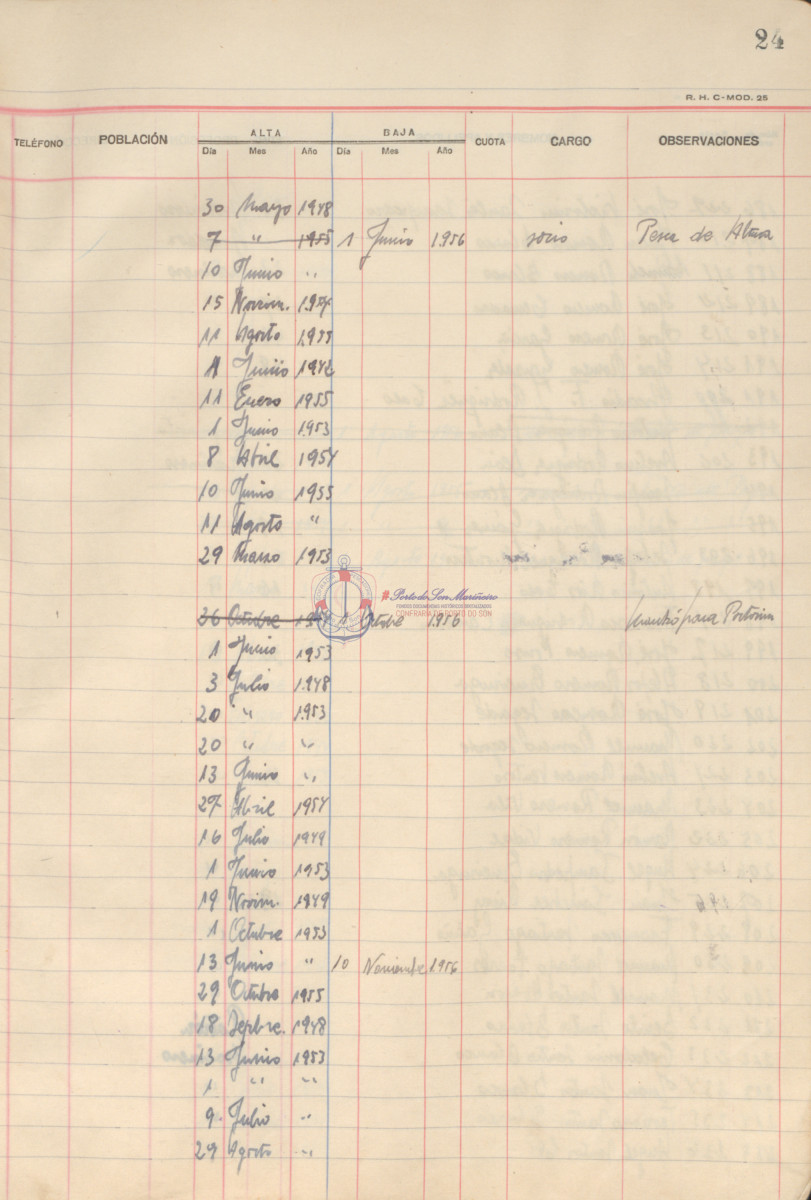 24
R. H. C-MOD. 25
TELÉFONO POBLACIÓN ALTA BAJA CUOTA CARGO OBSERVACIONES
Día Mes Año Día Mes Año
30 Mayo 1948
7 " 1955 1 Junio 1956 socio Pesca de Altura
10 Junio "
15 Novim. 1954
11 Agosto 1955
1 Junio 1942
11 Enero 1955
1 Junio 1953
8 Abril 1954
10 Junio 1955
11 Agosto "
29 Marzo 1953
Porto do Son Mariñeiro
FONDOS DOCUMENTAIS HISTÓRICOS DIXITALIZADOS
CONFRARÍA DE PORTO DO SON
26 Octubre 1954 1 Octubre 1956 para Portosin
1 Junio 1953
3 Julio 1948
20 " 1953
20 " "
13 Junio "
27 Abril 1954
16 Julio 1949
1 Junio 1953
19 Novim. 1949
1 Octubre 1953
13 Junio " 10 Noviembre 1956
29 Octubre 1955
18 Sepbre. 1948
13 Junio 1953
1 " "
9 Julio "
29 Agosto "